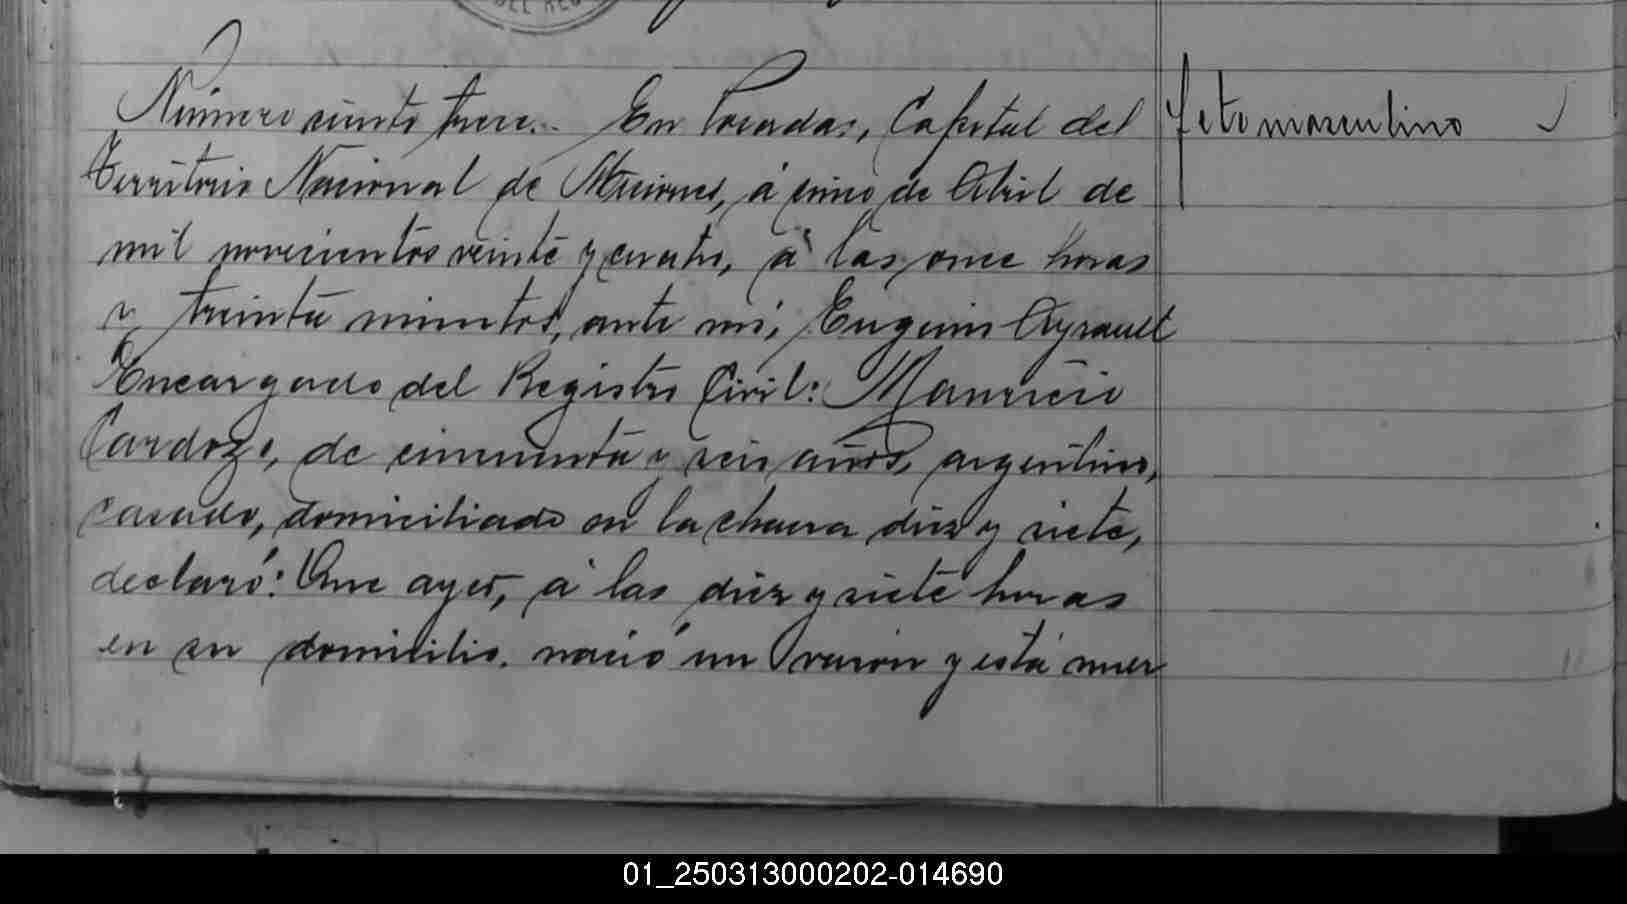 DEL REG
Número ciento trece.. En Posadas, Capital del
feto masculino
Territorio Nacional de Misiones, á cinco de Abril de
mil novecientos veinte y cuatro, á las once horas
y treinta minutos, ante mi, Eugenio Ayrault
Encargado del Registro Civil: Mauricio
Cardozo, de cincuenta y seis años, argentino,
casado, domiciliado en la chacra diez y siete,
declaró: Que ayer, á las diez y siete horas
en su domicilio. nació un varon y está muer
01_250313000202-014690